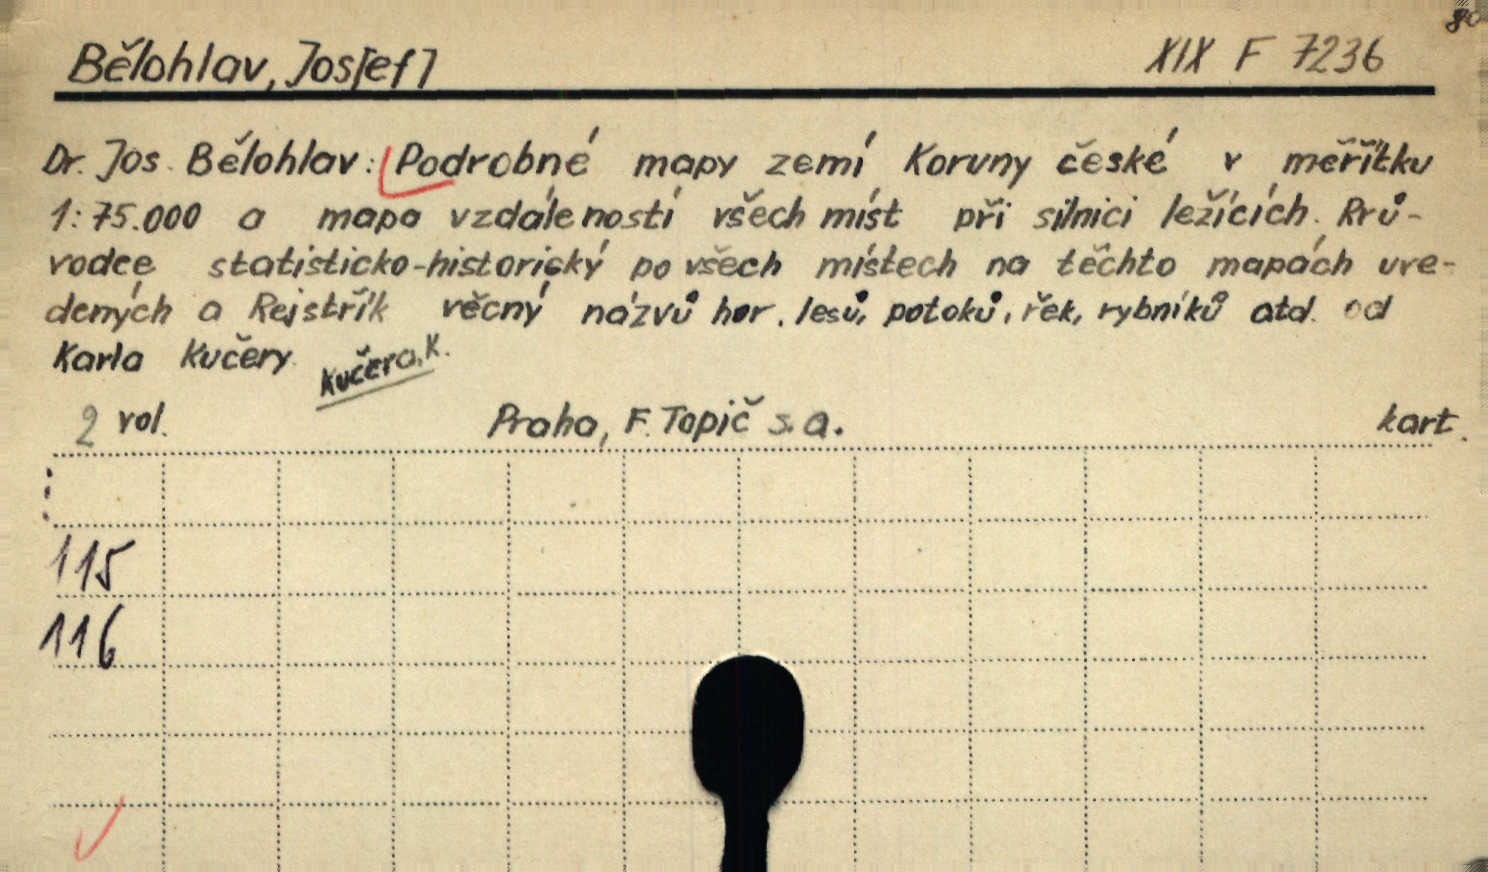 80
Bělohlav, Jos[ef] XIX F 7236
Dr. Jos. Bělohlav: Podrobné mapy zemí Koruny české v měřítku
1:75.000 a mapa vzdáleností všech míst při silnici ležících. Prů-
vodce statisticko-historický po všech místech na těchto mapách uve-
dených a Rejstřík věcný názvů hor, lesů, potoků, řek, rybníků atd. od
Karla Kučery.
Kučera, K.
2 vol. Praha, F. Topič s.a. kart.
115
116